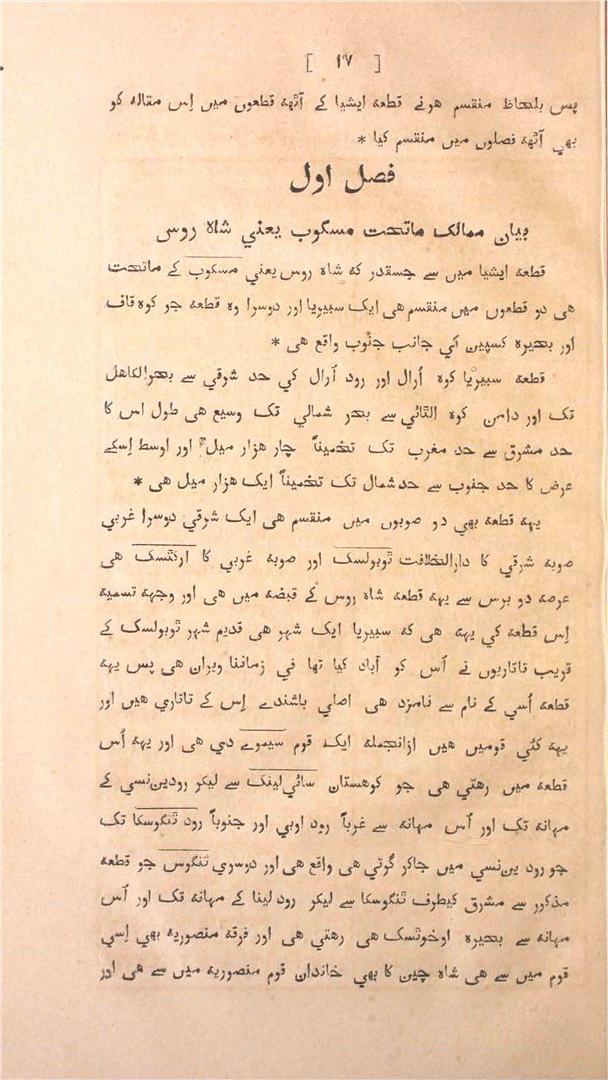 [ ١٧ ]
پس بلحاظ منقسم هونے قطعه ایشیا کے آٹهه قطعوں میں اِس مقاله کو
بهي آٹهه فصلوں میں منقسم کیا *
فصل اول
بیان ممالک ماتحت مسکوب یعني شاہ روس
قطعه ایشیا میں سے جسقدر که شاہ روس یعني مسکوب کے ماتحت
هی دو قطعوں میں منقسم هی ایک سیبیریا اور دوسرا وہ قطعه جو کوہ قاف
اور بحیرہ کسپین کي جانب جنوب واقع هی *
قطعه سیبریا کوہ اُرال اور رود اُرال کي حد شرقي سے بحرالکاهل
تک اور دامن کوہ الٹائي سے بحر شمالي تک وسیع هی طول اس کا
حد مشرق سے حد مغرب تک تخمیناً چار هزار میل اور اوسط اِسکے
عرض کا حد جنوب سے حد شمال تک تخمیناً ایک هزار میل هی *
یهه قطعه بهي دو صوبوں میں منقسم هی ایک شرقي دوسرا غربي
صوبه شرقي کا دارالخلافت ٹوبولسک اور صوبه غربي کا ارکٹسک هی
عرصه دو برس سے یهه قطعه شاہ روس کے قبضه میں هی اور وجهه تسمیه
اِس قطعه کي یهه هی که سیبیریا ایک شهر هی قدیم شهر ٹوبولسک کے
قریب تاتاریوں نے اُس کو آباد کیا تها في زماننا ویران هی پس یهه
قطعه اُسي کے نام سے نامزد هی اصلي باشندے اِس کے تاتاري هیں اور
یهه کئي قومیں هیں ازانجمله ایک قوم سیموے دي هی اور یهه اُس
قطعه میں رهتي هی جو کوهستان سائي لینک سے لیکر رودین‌نسي کے
مهانه تک اور اُس مهانه سے غرباً رود اوبي اور جنوباً رود ٹنگوسکا تک
جو رود ین‌نسي میں جاکر گرتي هی واقع هی اور دوسري ٹنگوس جو قطعه
مذکور سے مشرق کیطرف ٹنگوسکا سے لیکر رود لینا کے مهانه تک اور اُس
مهانه سے بحیرہ اوخوٹسک هی رهتي هی اور فرقه منصوریه بهي اِسي
قوم میں سے هی شاہ چین کا بهي خاندان قوم منصوریه میں سے هی اور